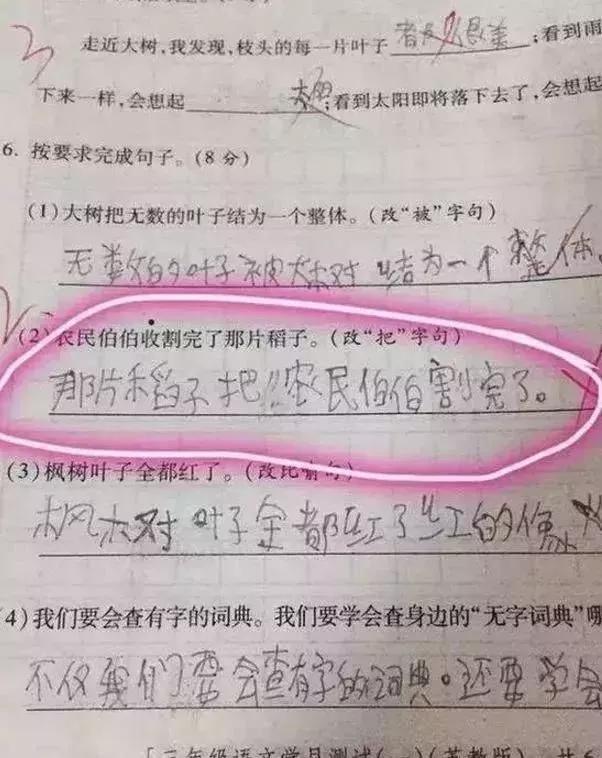 走近大树,我发现,枝头的每一片叶子 ;看到雨
下来一样,会想起 ;看到太阳即将落下去了,会想起
6. 按要求完成句子。(8分)
(1)大树把无数的叶子结为一个整体。(改“被”字句)
无数的叶子被大树结为一个整体。
(2)农民伯伯收割完了那片稻子。(改“把”字句)
那片稻子把农民伯伯割完了。
(3)枫树叶子全都红了。(改比喻句)
枫树叶子全都红了红的像火
4)我们要会查有字的词典。我们要学会查身边的“无字词典”
不仅我们要会查有字的词典。还要学会
三年级语文学月测试(一)(苏教版) 共6